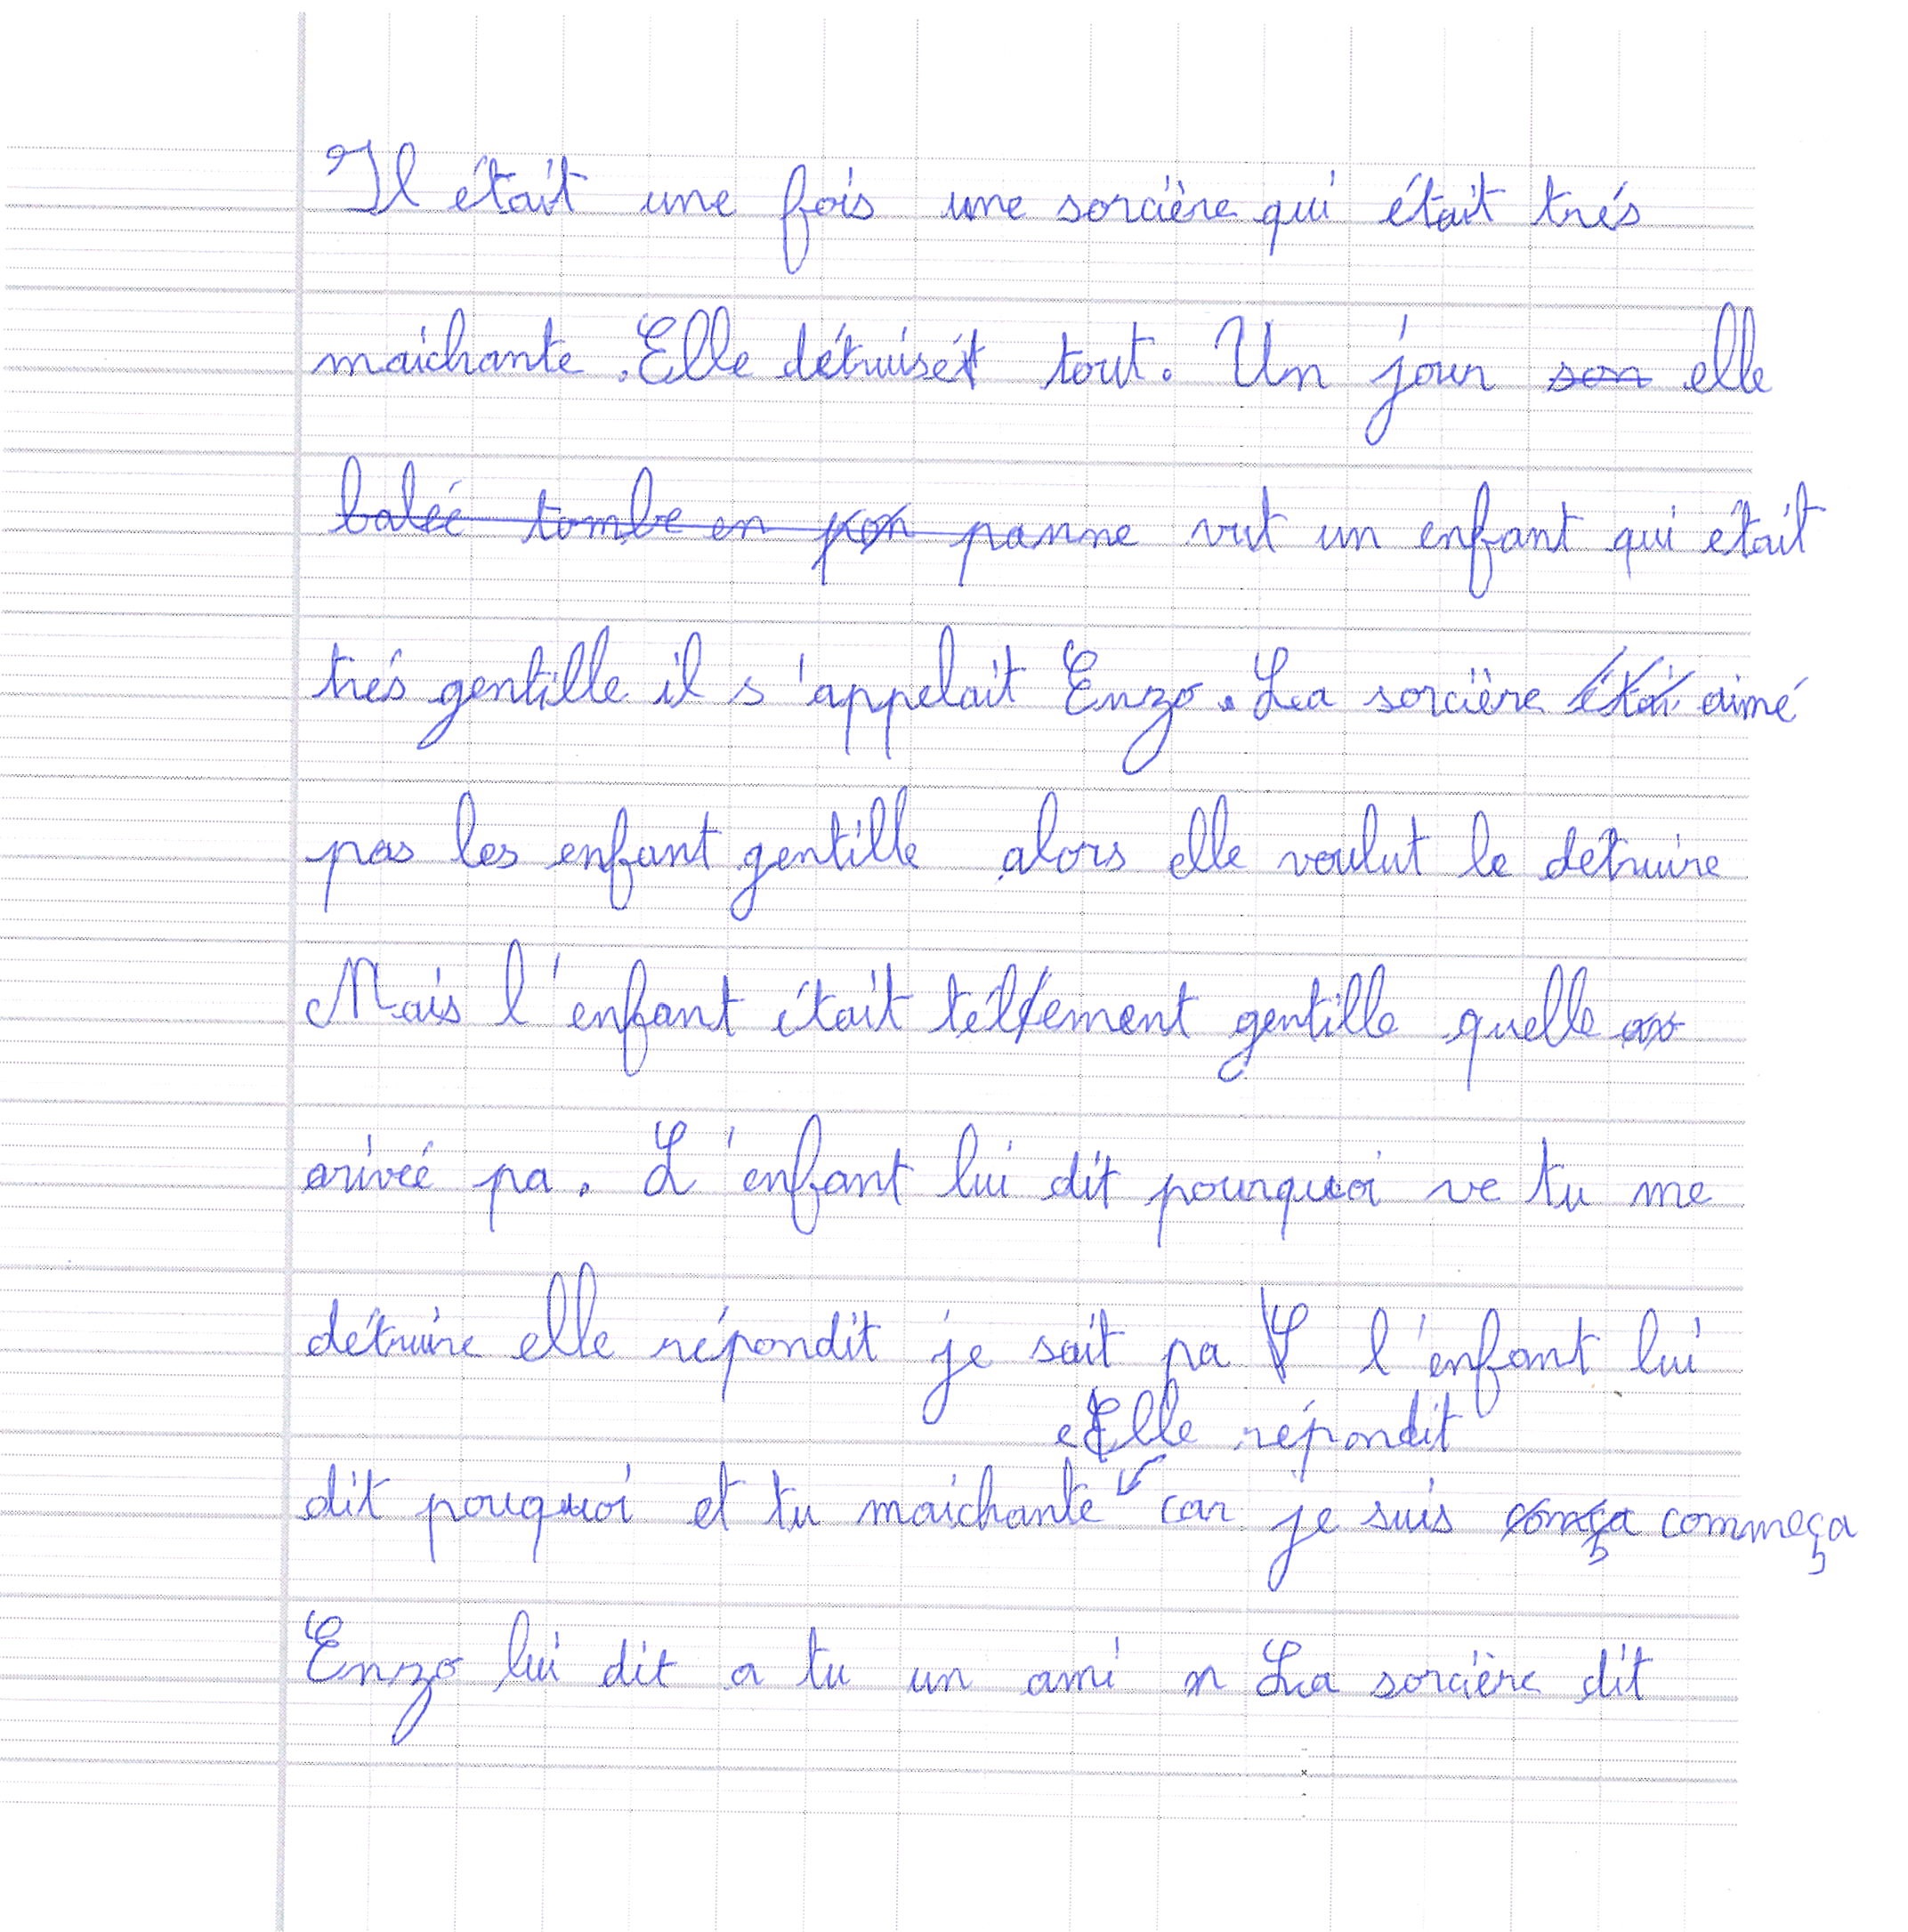 Il était une fois une sorcière qui était trés
maichante. Elle détruisét tout. Un jour son elle
baleé tombe en pon panne vut un enfant qui était
trés gentille il s'appelait Enzo. La sorcière étai aimé
pas les enfant gentille alors elle voulut le détruire
Mais l'enfant était téllement gentille quelle
arivéé pa. L'enfant lui dit pourquoi ve tu me
détruire elle répondit je sait pa l'enfant lui
eElle répondit
dit pouquoi et tu maichante car je suis comça commeça
Enzo lui dit a tu un ami La sorcière dit